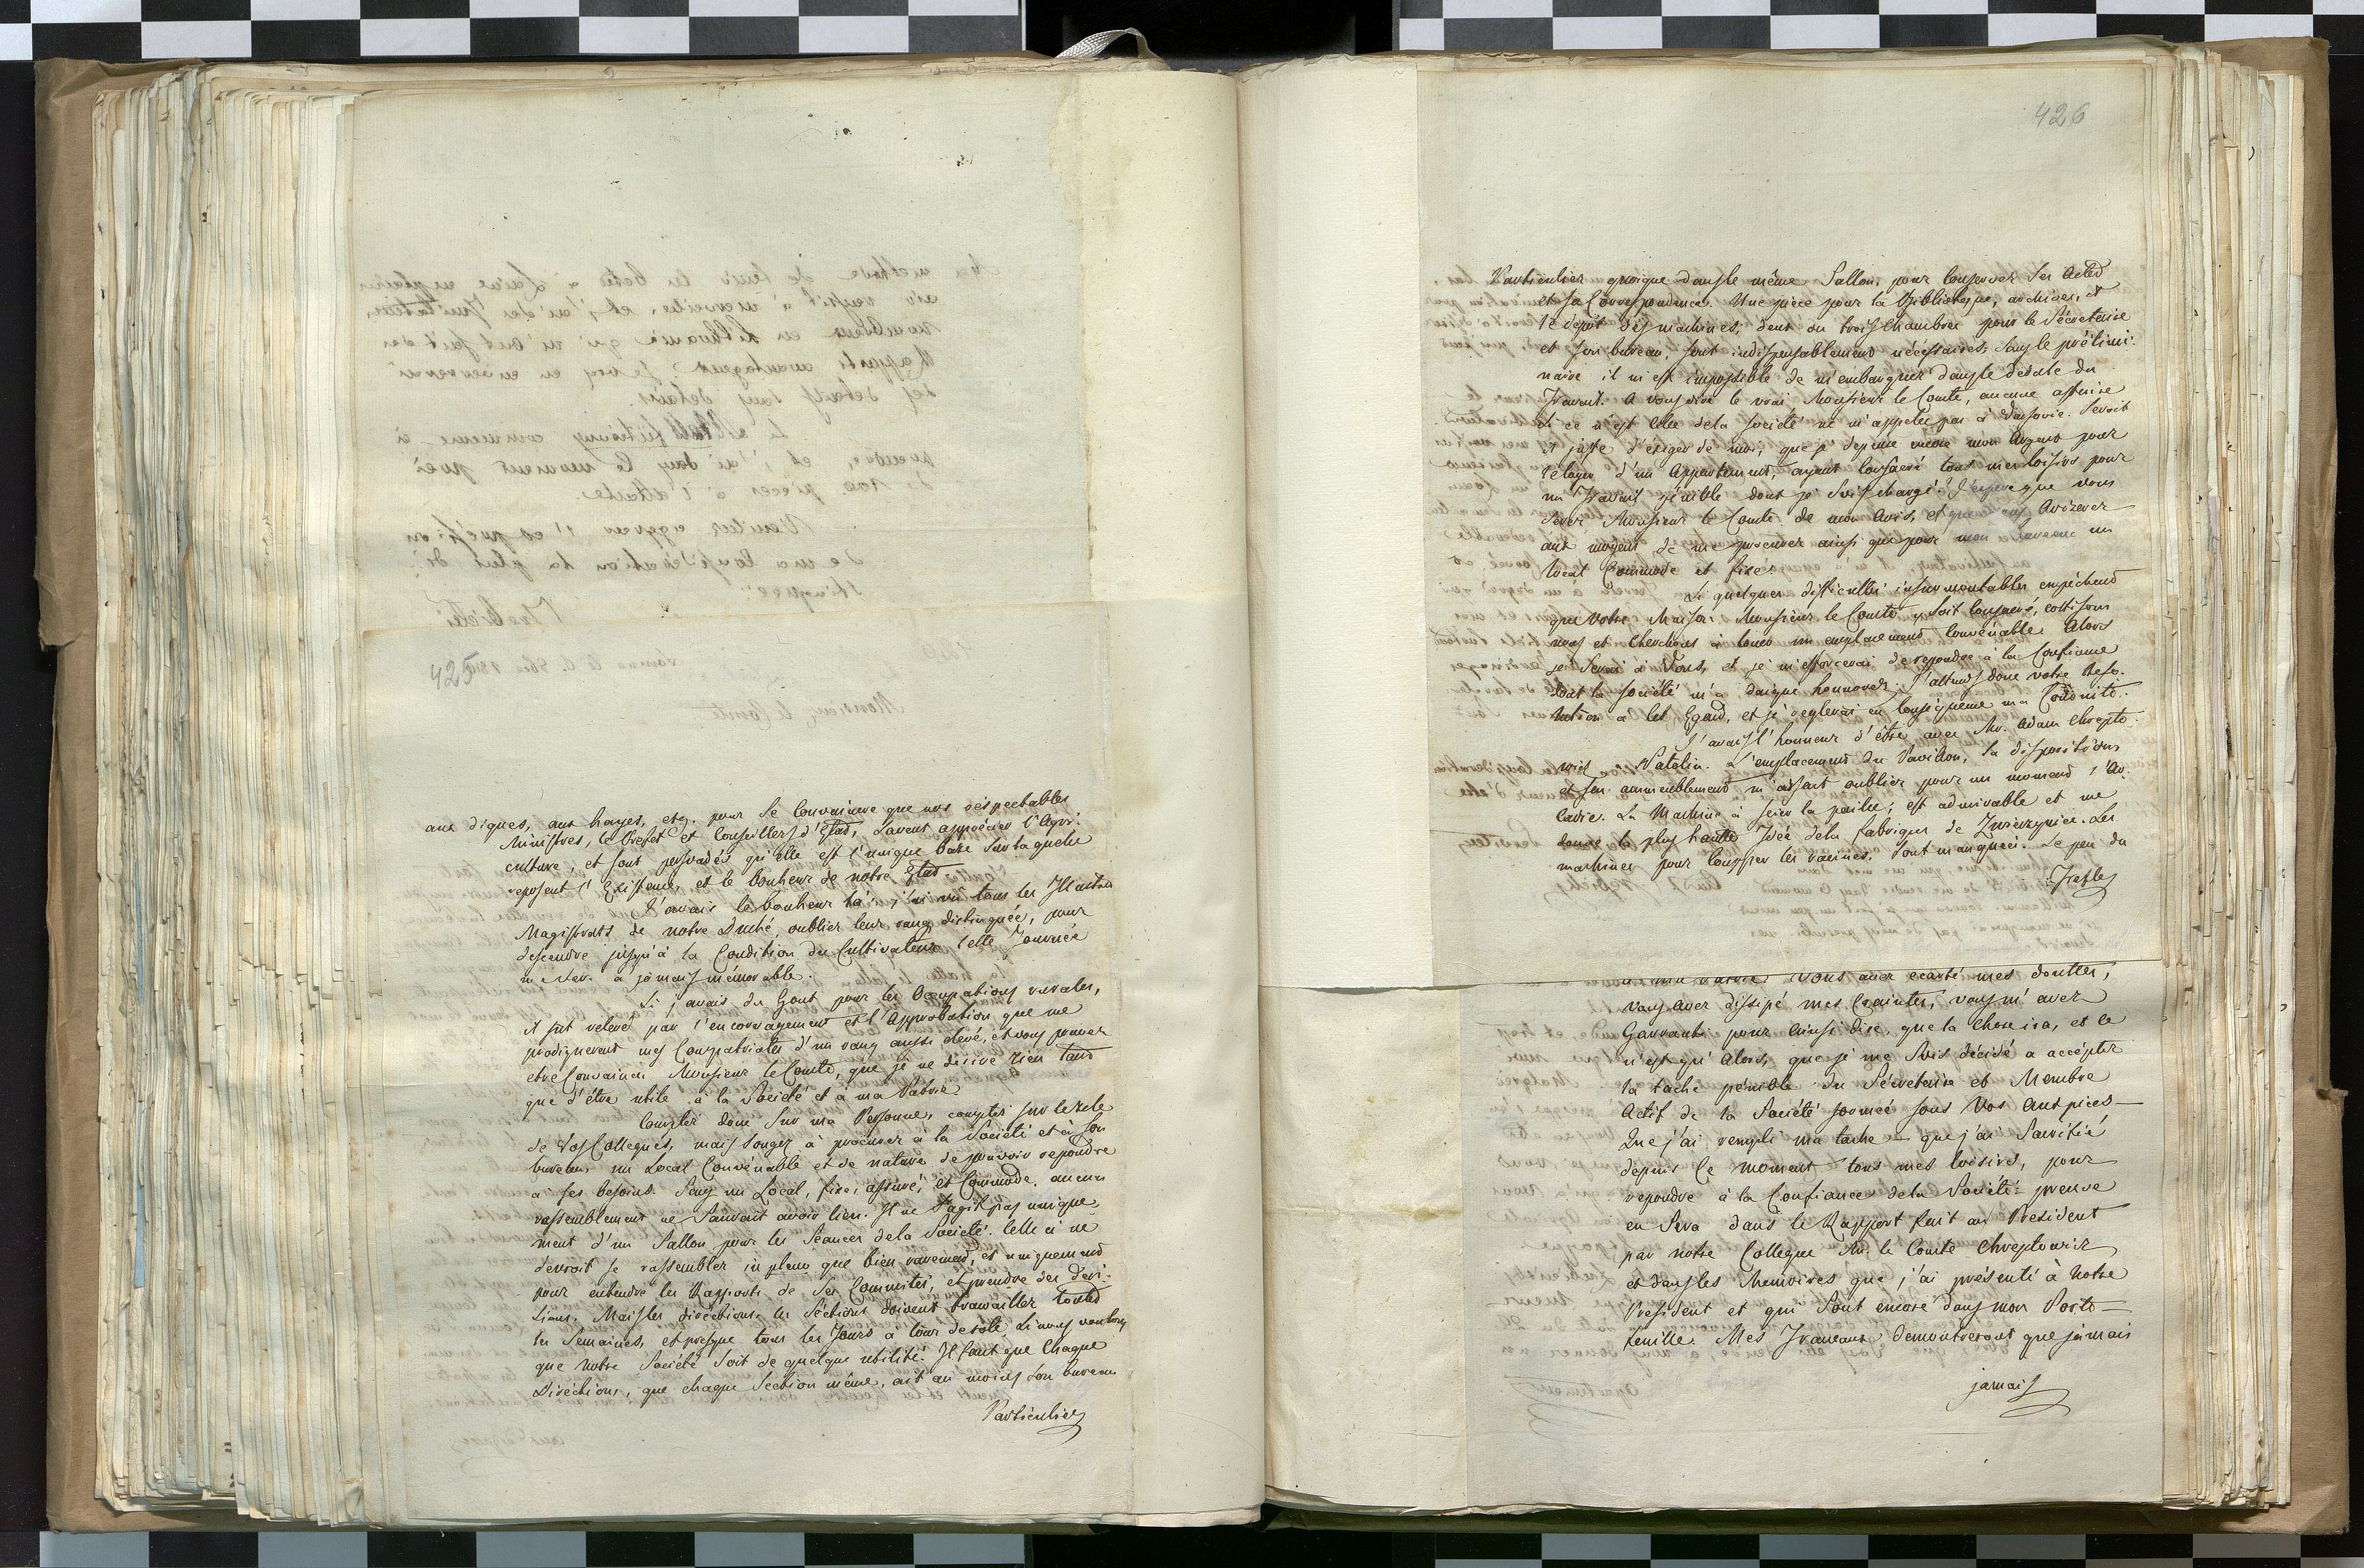 aux digues, aux hayes, etz. pour se Convaincre que nos respectables
Ministres, le Prefet et Conseillers d'Etat, Savent apprécier l'Agri-
culture, et sont persuadés qu'elle est l'unique baze Surlaquelle
reposent l'Existence et le bonheur de notre Etat
J'avais le bonheur la: j'ai vu tous les Illustres
Magistrats de notre Duché, oublier leur rang distinguée, pour
descendre jusqu'à la Condition du Cultivateur. Cette Journée
me Sera a jamais mémorable.
Si j'avais du Gout pour les Occupations rurales,
il fut relevé par l'encouragement et l'Approbation que me
prodiguerent mes Compatriotes d'un rang aussi elevé, et vous pouvez
etre Convaincu Monsieur le Comte, que je ne désire rien tant
que d'être utile à la Société et à ma Patrie.
Comptés donc Sur ma Personne, comptés sur le zele
de Vos Collegues, mais Songez à procurer à la Société et à son
bureau, un Local Convénable et de nature de pouvoir repondre
a ses besoins. Sans un Local, fixe, assuré, et Commode, aucun
rassemblement ne Sauroit avoir lieu. Il ne S'agit pas unique-
ment d'un Sallon pour les Séances dela Société. Celle ci ne
devroit se rassembler in pleno que bien rarement, et uniquement
pour entendre les Rapports de Ses Committés, et prendre des Déci-
sions. Mais les diréctions, les Séctions doivent travailler toutes
les Semaines, et presque tous les Jours a tour derole, Si nous voulons
que Notre Société Soit de quelque utilité. Il faut que Chaque
Diréctions, que chaque Section même, ait au moins Son bureau
Particulier
426
Particulier quoique dans le même Sallon, pour Conserver Ses Actes
et Sa Correspondence. Une piece pour la Bibliotheque, archives, et
le depot des machines, deux ou trois Chambres pour le Sécretaire
et Son bureau, Sont indispensablement nécéssaires. Sans le prélimi-
naire il m'est impossible de m'embarquer dans le dédale du
Travail. A vous dire le vrai Monsieur le Comte, aucune affaire
Si ce n'est Celle dela Société ne m'appelle pas à Varsovie. Seroit
il juste d'éxiger de moi, que je depense encore mon Argent pour
le loyer d'un Appartement, ayant Consacré tous mes loisirs pour
un Travail pénible dont je Suis Chargé? J'espere que vous
Serez Monsieur le Comte de mon Avis, et que vous Avizerez
aux moyens de me procurer ainsi que pour mon bureau un
local Commode et fixe.
Si quelques difficultés insurmontables empêchent
que Votre Maison Monsieur le Comte y Soit Consacré, cottisons
nous et Cherchons à louer un emplacement Convénable. Alors
je Serai à Vous, et je m'efforcerai derepondre à la Confiance
dont la Société m'a daigné honnorer. J'attends donc votre Reso-
lution à Cet Egard, et je reglerai en Conséquence ma Conduite.
J'avais l'honneur d'être avec Mr. Adam Chrepto-
wicz Natolin. L'emplacement du Pavillon, Sa disposition
et Son ammeublement m'a fait oublier pour un moment l'
La Machine à Scier la paille, est admirable et me
donne la plus haute Idée dela fabrique de Zwierzyniec. Les
machines pour Coupper les racines, Sont manquées. Le peu du
Trefle
Vous avez ecarté mes douttes,
vous avez dissipé mes Craintes, vous m'avez
Garranti pour Ainsi dire, que la Chose ira, et ce
n'est qu'Alors, que je me Suis décidé a accépter
la tache pénible du Sécretaire et Membre
Actif de la Société formée sous Vos Auspices —
Que j'ai rempli ma tache — que j'ai Sacrifié
depuis Ce moment tous mes loisirs, pour
repondre à la Confiance dela Société — preuve
en Sera dans le Rapport fait au President
par notre Collegue Mr. le Comte Chreptowicz
et dans les Memoires que j'ai présenté à Notre
President et qui Sont encore dans mon Porte-
feuille. Mes Travaux demontreront que jamais
jamais
425
Monsieur le Comte